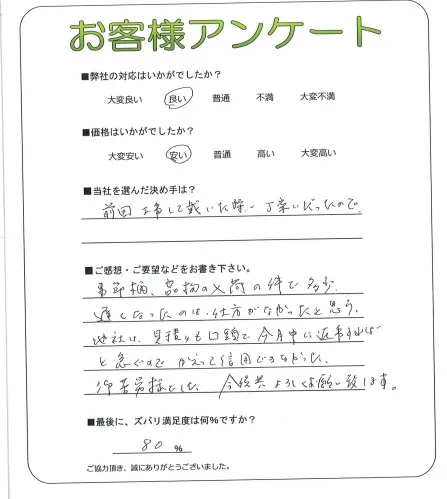 お客様アンケート
■弊社の対応はいかがでしたか？
大変良い 良い 普通 不満 大変不満
■価格はいかがでしたか？
大変安い 安い 普通 高い 大変高い
■当社を選んだ決め手は？
前回工事して戴いた際、丁寧だったので。
■ご感想・ご要望などをお書き下さい。
季節柄、品物の入荷の件で多少
遅くなったのは、仕方がなかったと思う。
他社は、見積りも口頭で今月中に返事すれば
と急ぐので かえって信用できなかった。
御苦労様でした 今後共よろしくお願い致します。
■最後に、ズバリ満足度は何％ですか？
80 ％
ご協力頂き、誠にありがとうございました。